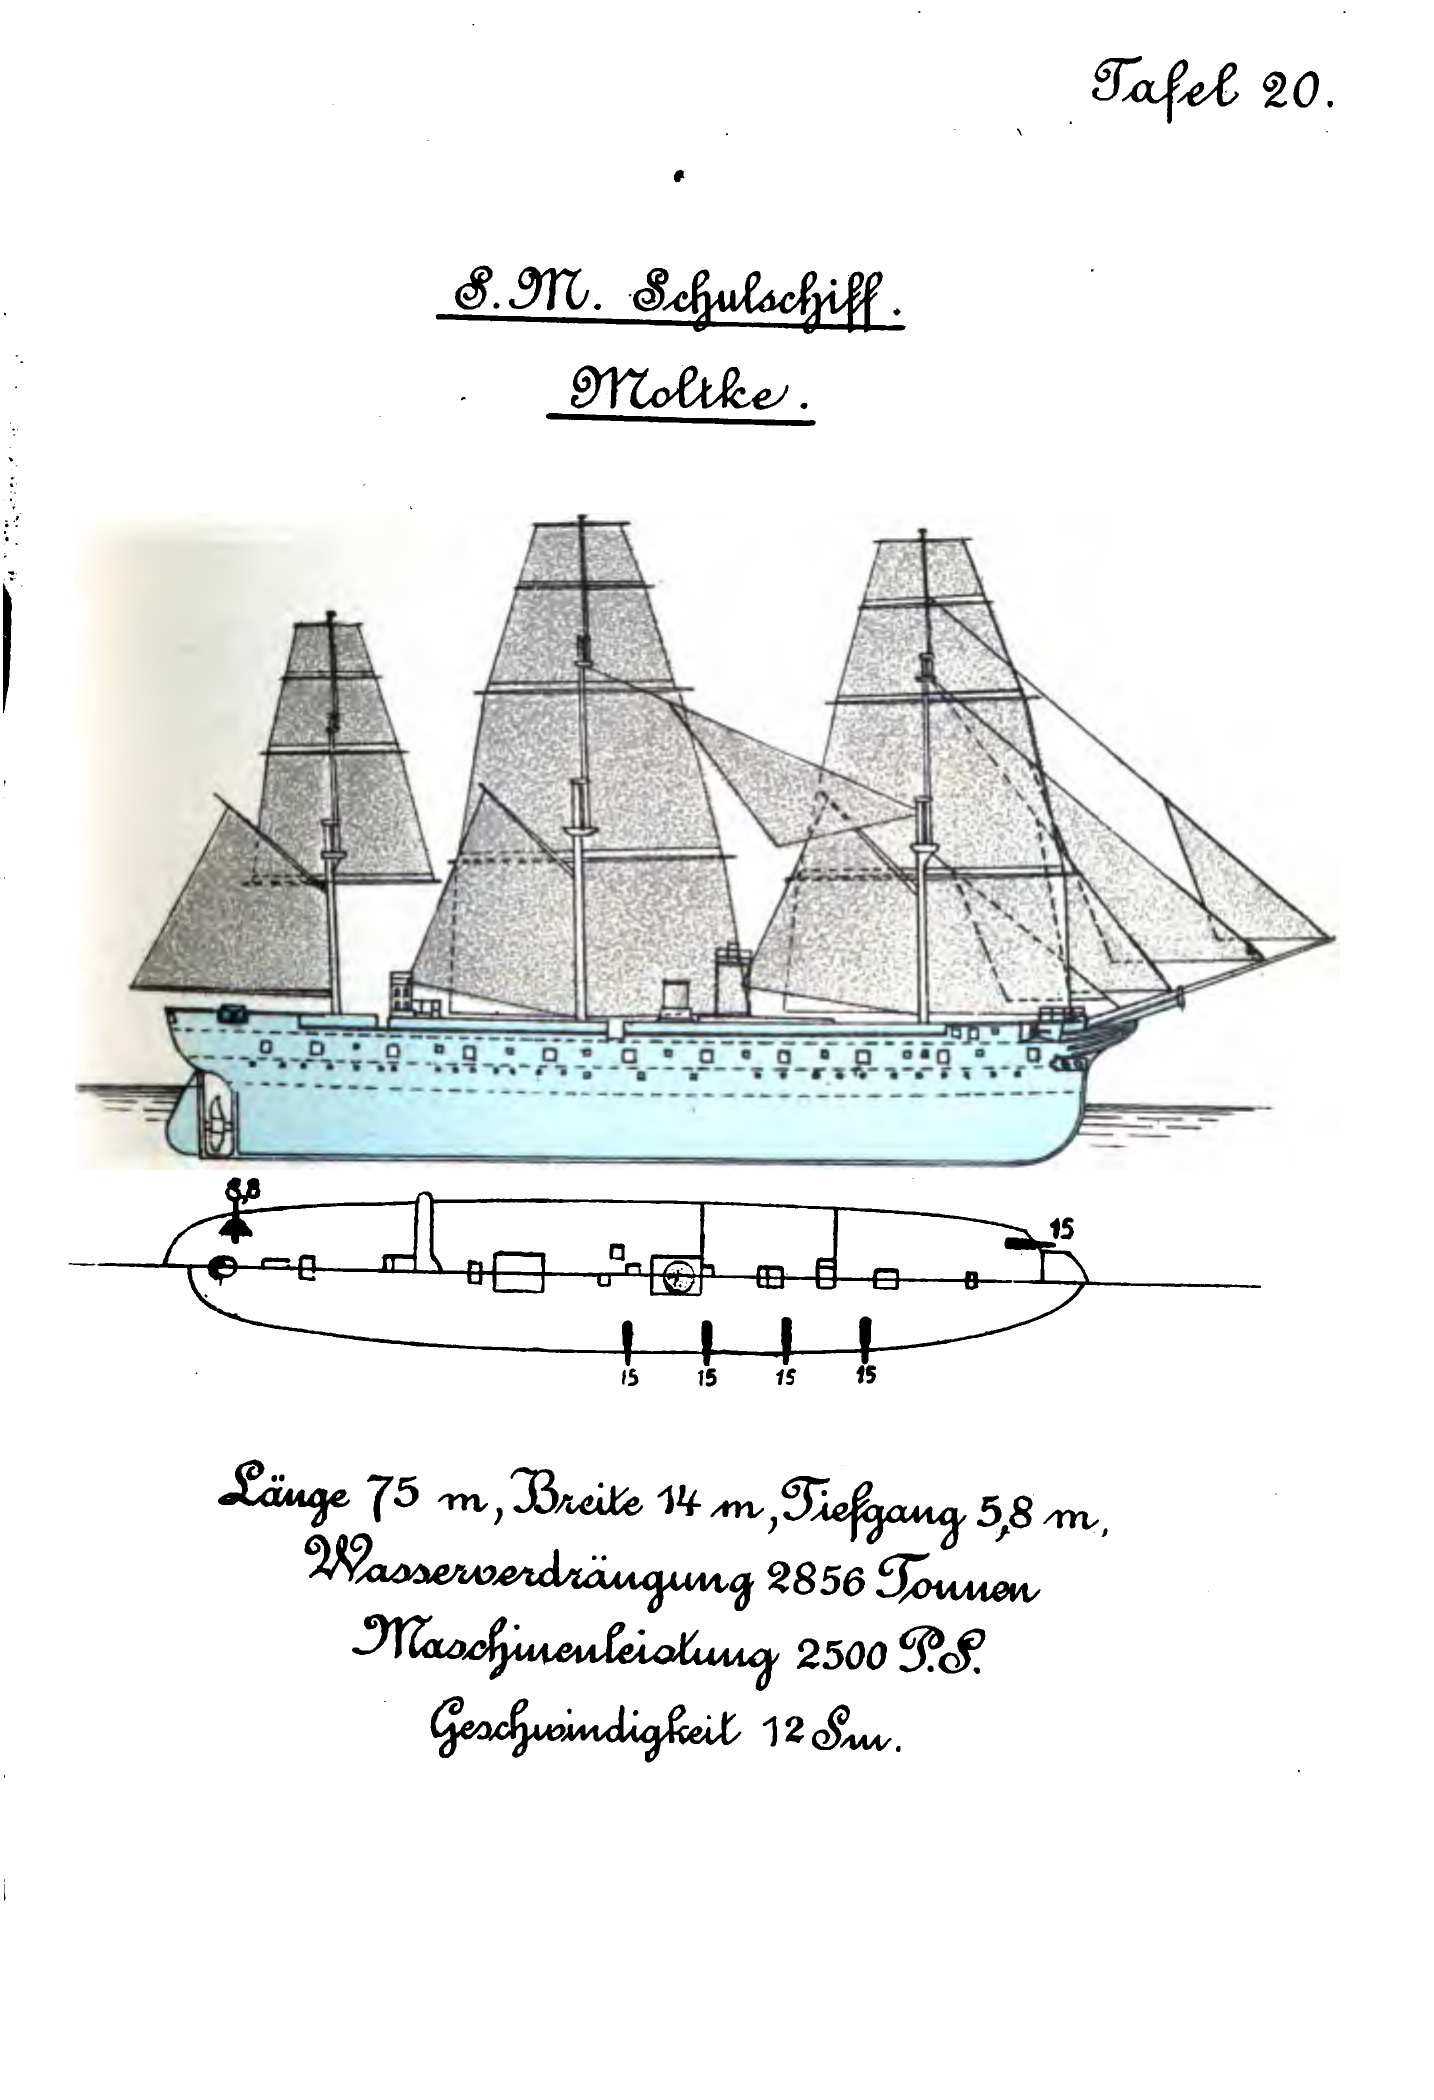 Tafel 20.
S. M. Schulschiff.
Moltke.
8,8
15
15 15 15 15
Länge 75 m, Breite 14 m, Tiefgang 5,8 m,
Wasserverdrängung 2856 Tonnen
Maschinenleistung 2500 P.S.
Geschwindigkeit 12 Sm.